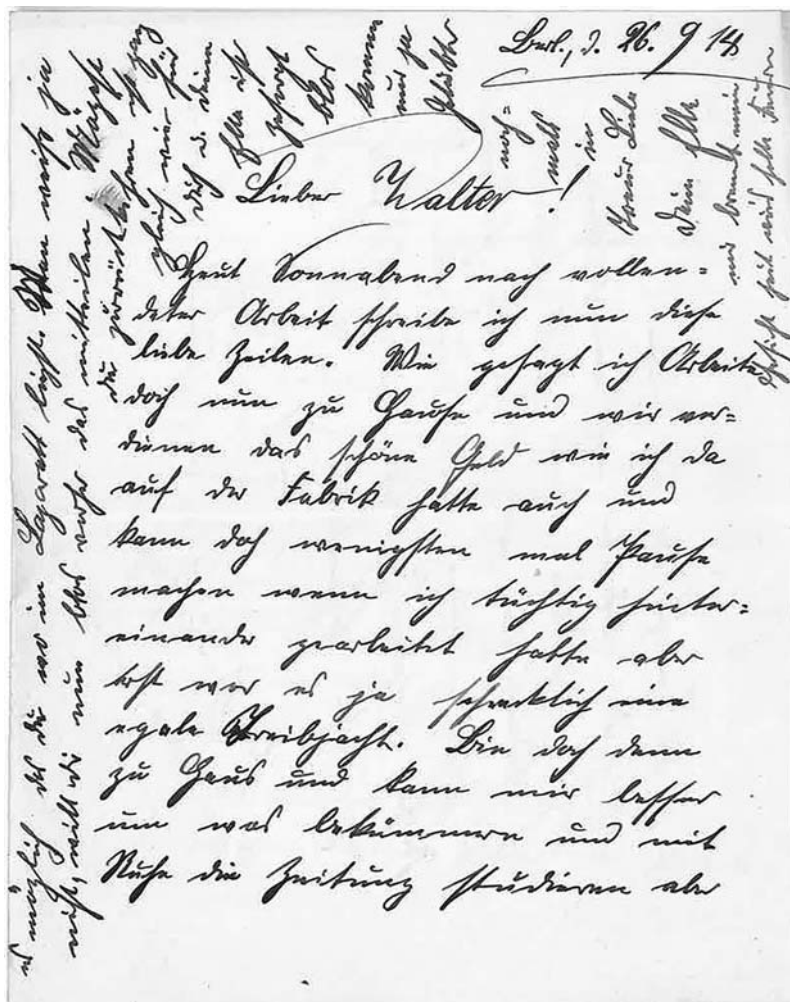 Berl., d. 26. 9 14
Lieber Walter!
Heut Sonnabend nach vollen=
deter Arbeit schreibe ich nun diese
liebe Zeilen. Wie gesagt ich Arbeite
doch nun zu Hause und wir ver=
dienen das schöne Geld wie ich da
auf der Fabrik hatte auch und
kann doch wenigsten mal Pause
machen wenn ich tüchtig hinter=
einander gearbeitet hatte aber
erst war es ja schrecklich eine
egale Treibjacht. Bin doch denn
zu Haus und kann mir besser
um was bekümmern und mit
Ruhe die Zeitung studieren aber
es möglich das du wo im Lazarett liegst. Man weiß ja
nicht, willst du nun blos vorher das mitteilen. Magst
du zurück
gleich wie für
dich d. deine
Ella ist
gesagt
blos
komme
nur ja
noch=
mals
in
treuer Liebe
Dein Ella